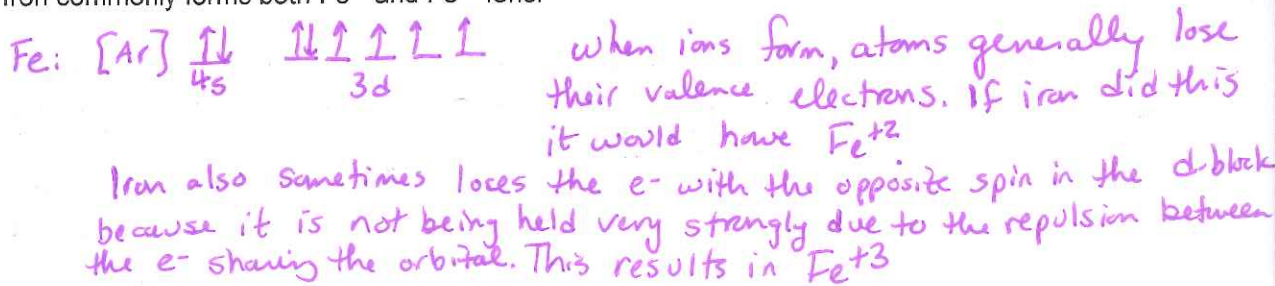 Iron commonly forms both Fe and Fe ions.
Fe: [Ar] ↿⇂ ↿⇂ ↿ ↿ ↿ ↿ when ions form, atoms generally lose
4s 3d their valence electrons. If iron did this
it would have Fe+2
Iron also sometimes loses the e- with the opposite spin in the d-block
because it is not being held very strongly due to the repulsion between
the e- sharing the orbital. This results in Fe+3